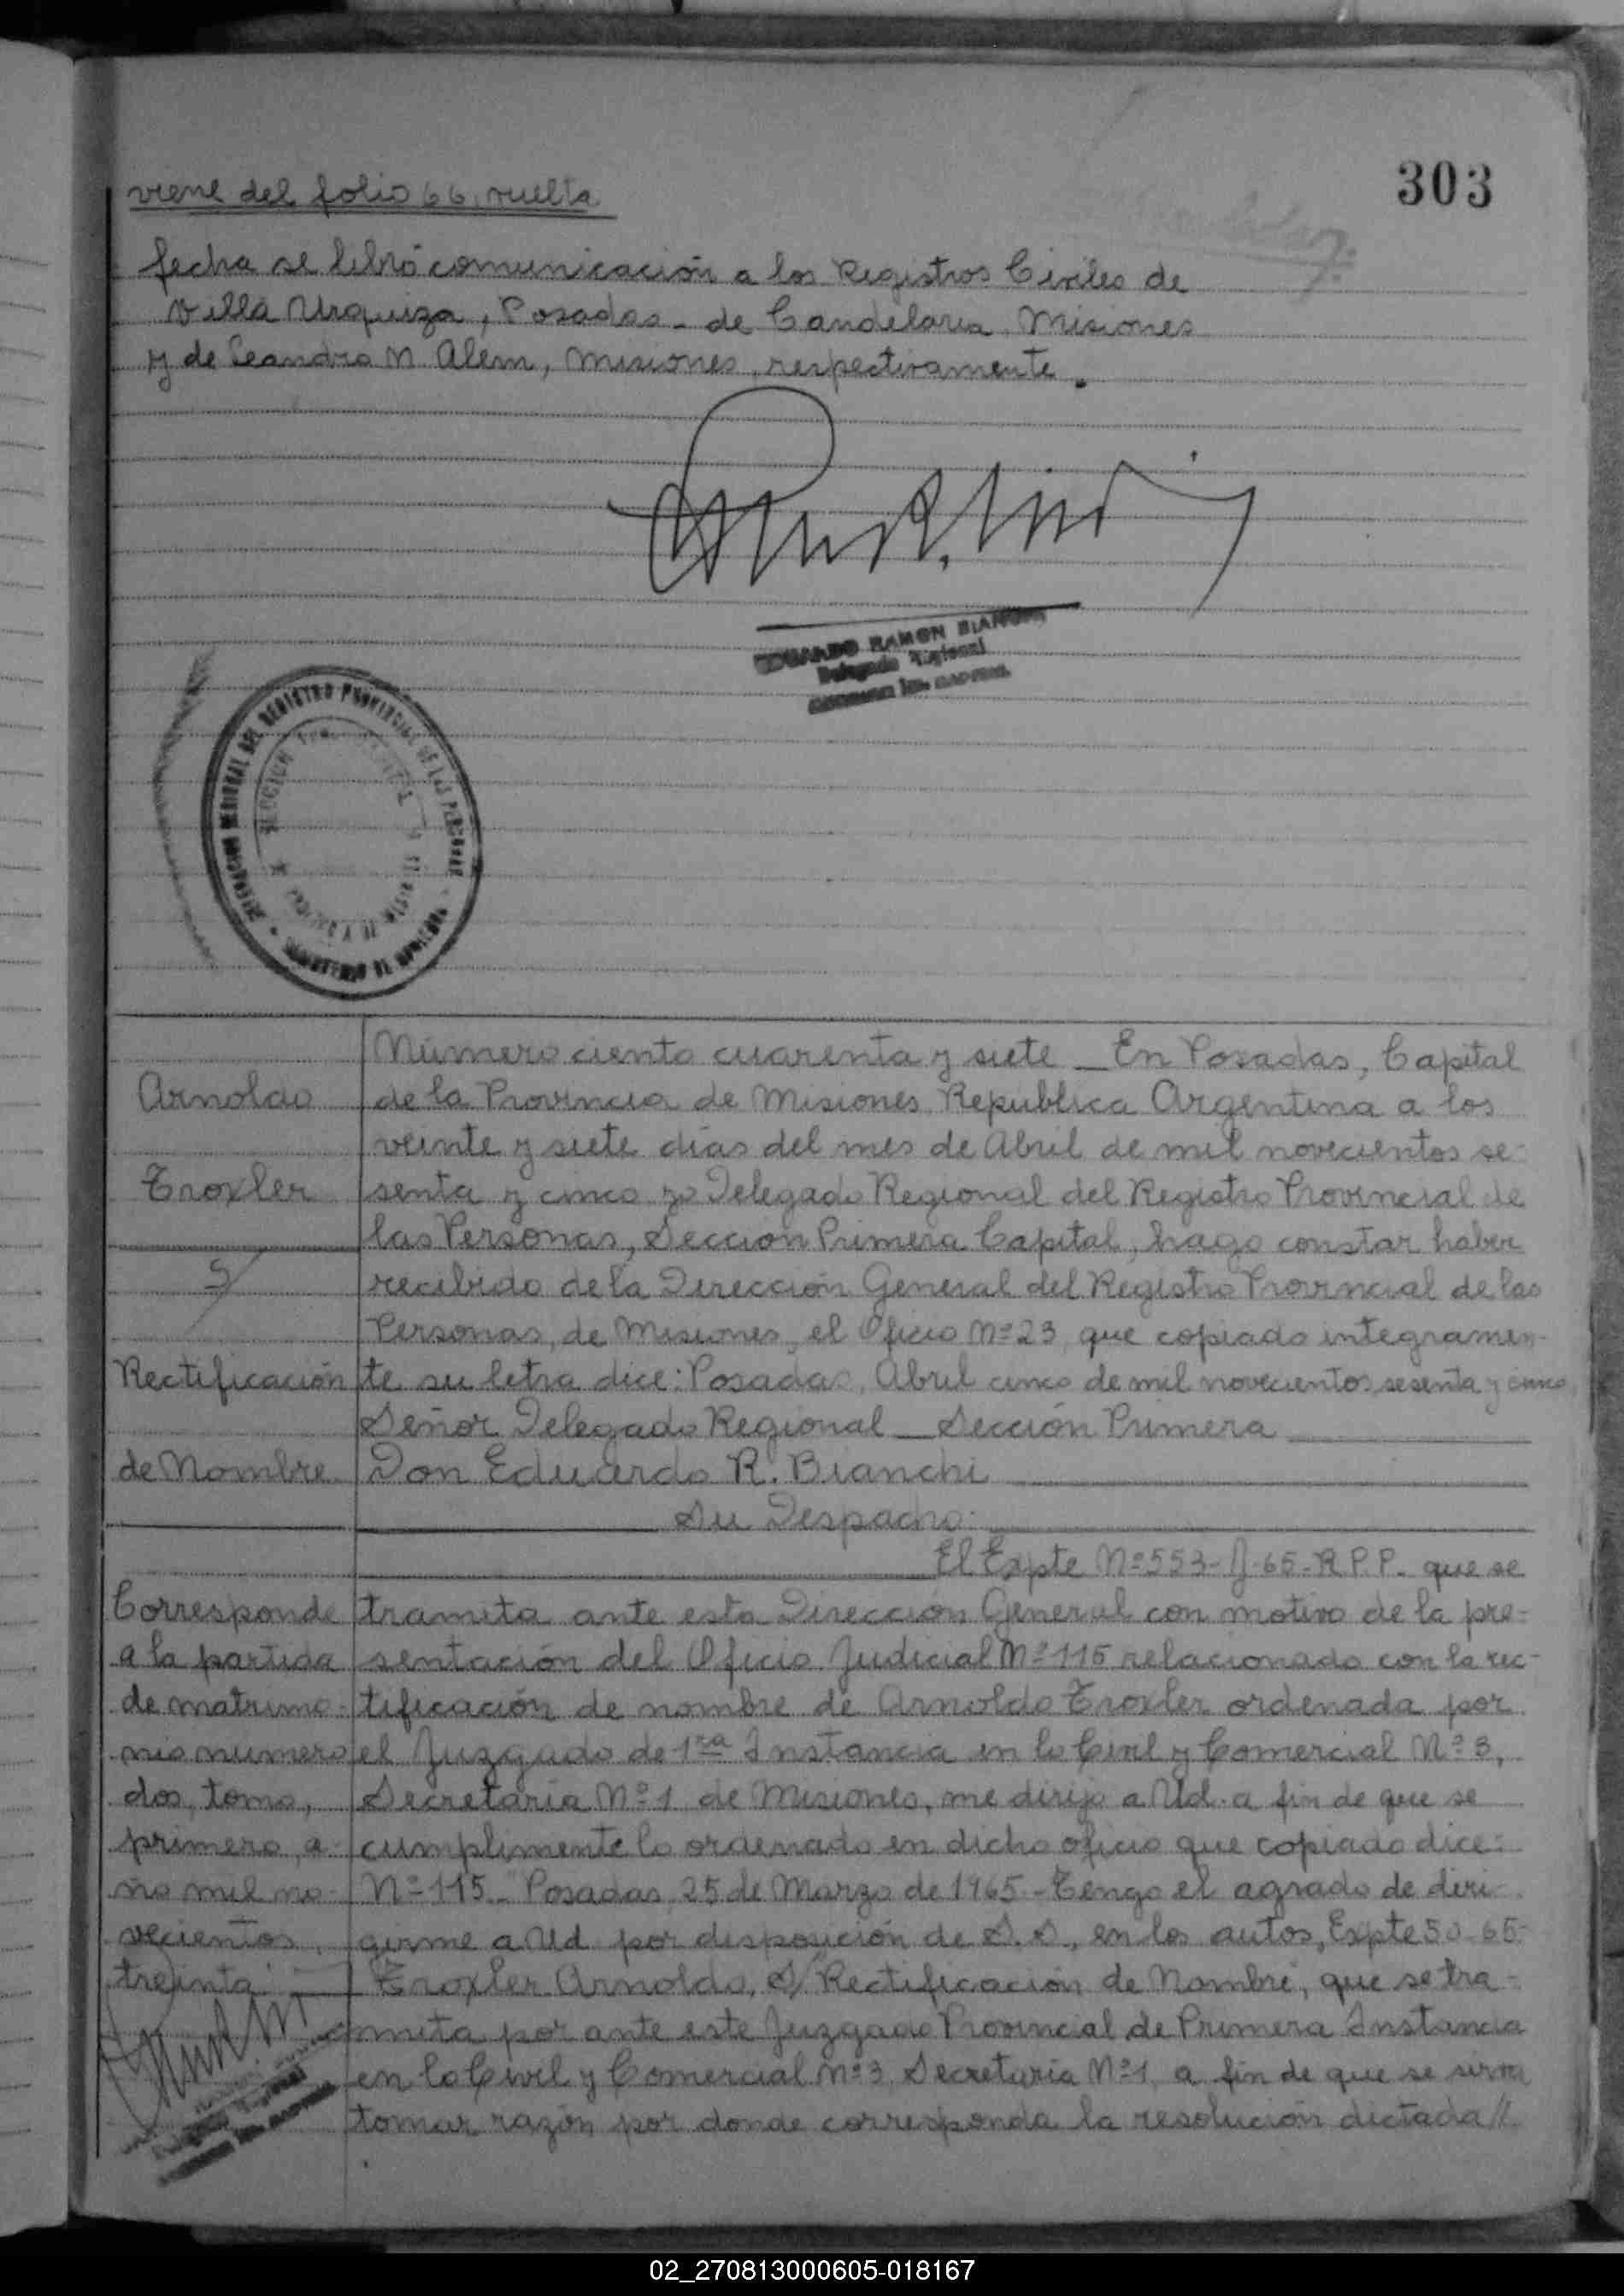 303
viene del folio 66, vuelta
fecha se libró comunicación a los Registros Civiles de
Villa Urquiza, Posadas - de Candelaria, Misiones
y de Leandro N Alem, Misiones, respectivamente.
EDUARDO RAMON BIANCHI
Delegado Regional
REGIONAL DEL REGISTRO PROVINCIAL DE LAS PERSONAS
SECCION
Arnoldo
Troxler
S/
Rectificación
de Nombre
Corresponde
a la partida
de matrimo-
nio numero
dos, tomo,
primero, a-
ño mil no-
vecientos
treinta
Número ciento cuarenta y siete _ En Posadas, Capital
de la Provincia de Misiones Republica Argentina a los
veinte y siete días del mes de Abril de mil novecientos se-
senta y cinco yo Delegado Regional del Registro Provincial de
las Personas, Sección Primera Capital, hago constar haber
recibido de la Dirección General del Registro Provincial de las
Personas, de Misiones, el Oficio Nº 23, que copiado integramen-
te su letra dice: Posadas, Abril cinco de mil novecientos sesenta y cinco
Señor Delegado Regional _ Sección Primera
Don Eduardo R. Bianchi
Su Despacho:
El Expte Nº 553-J-65-R.P.P. que se
tramita ante esta Dirección General con motivo de la pre-
sentación del Oficio Judicial Nº 115 relacionado con la rec-
tificación de nombre de Arnoldo Troxler ordenada por
el Juzgado de 1ra Instancia en lo Civil y Comercial Nº 3,
Secretaría Nº 1 de Misiones, me dirijo a Ud. a fin de que se
cumplimente lo ordenado en dicho oficio que copiado dice:
Nº 115_ "Posadas, 25 de Marzo de 1965 - Tengo el agrado de diri-
girme a Ud por disposición de S.S., en los autos, Expte 50-65-
Troxler Arnoldo, S/ Rectificación de Nombre, que se tra-
mita por ante este Juzgado Provincial de Primera Instancia
en lo Civil y Comercial Nº 3, Secretaría Nº 1, a fin de que se sirva
tomar razón por donde corresponda la resolución dictada //
02_270813000605-018167